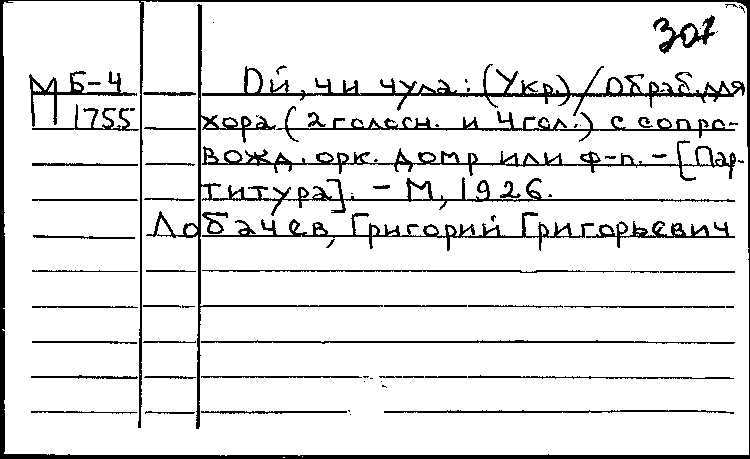 307
М Б-4
1755
Ой, чи чула: (Укр.) / Обраб. для
хора (2 голосн. и 4 гол.) с сопро-
вожд. орк. домр или ф-п. - [Пар-
титура]. - М, 1926.
Лобачев, Григорий Григорьевич